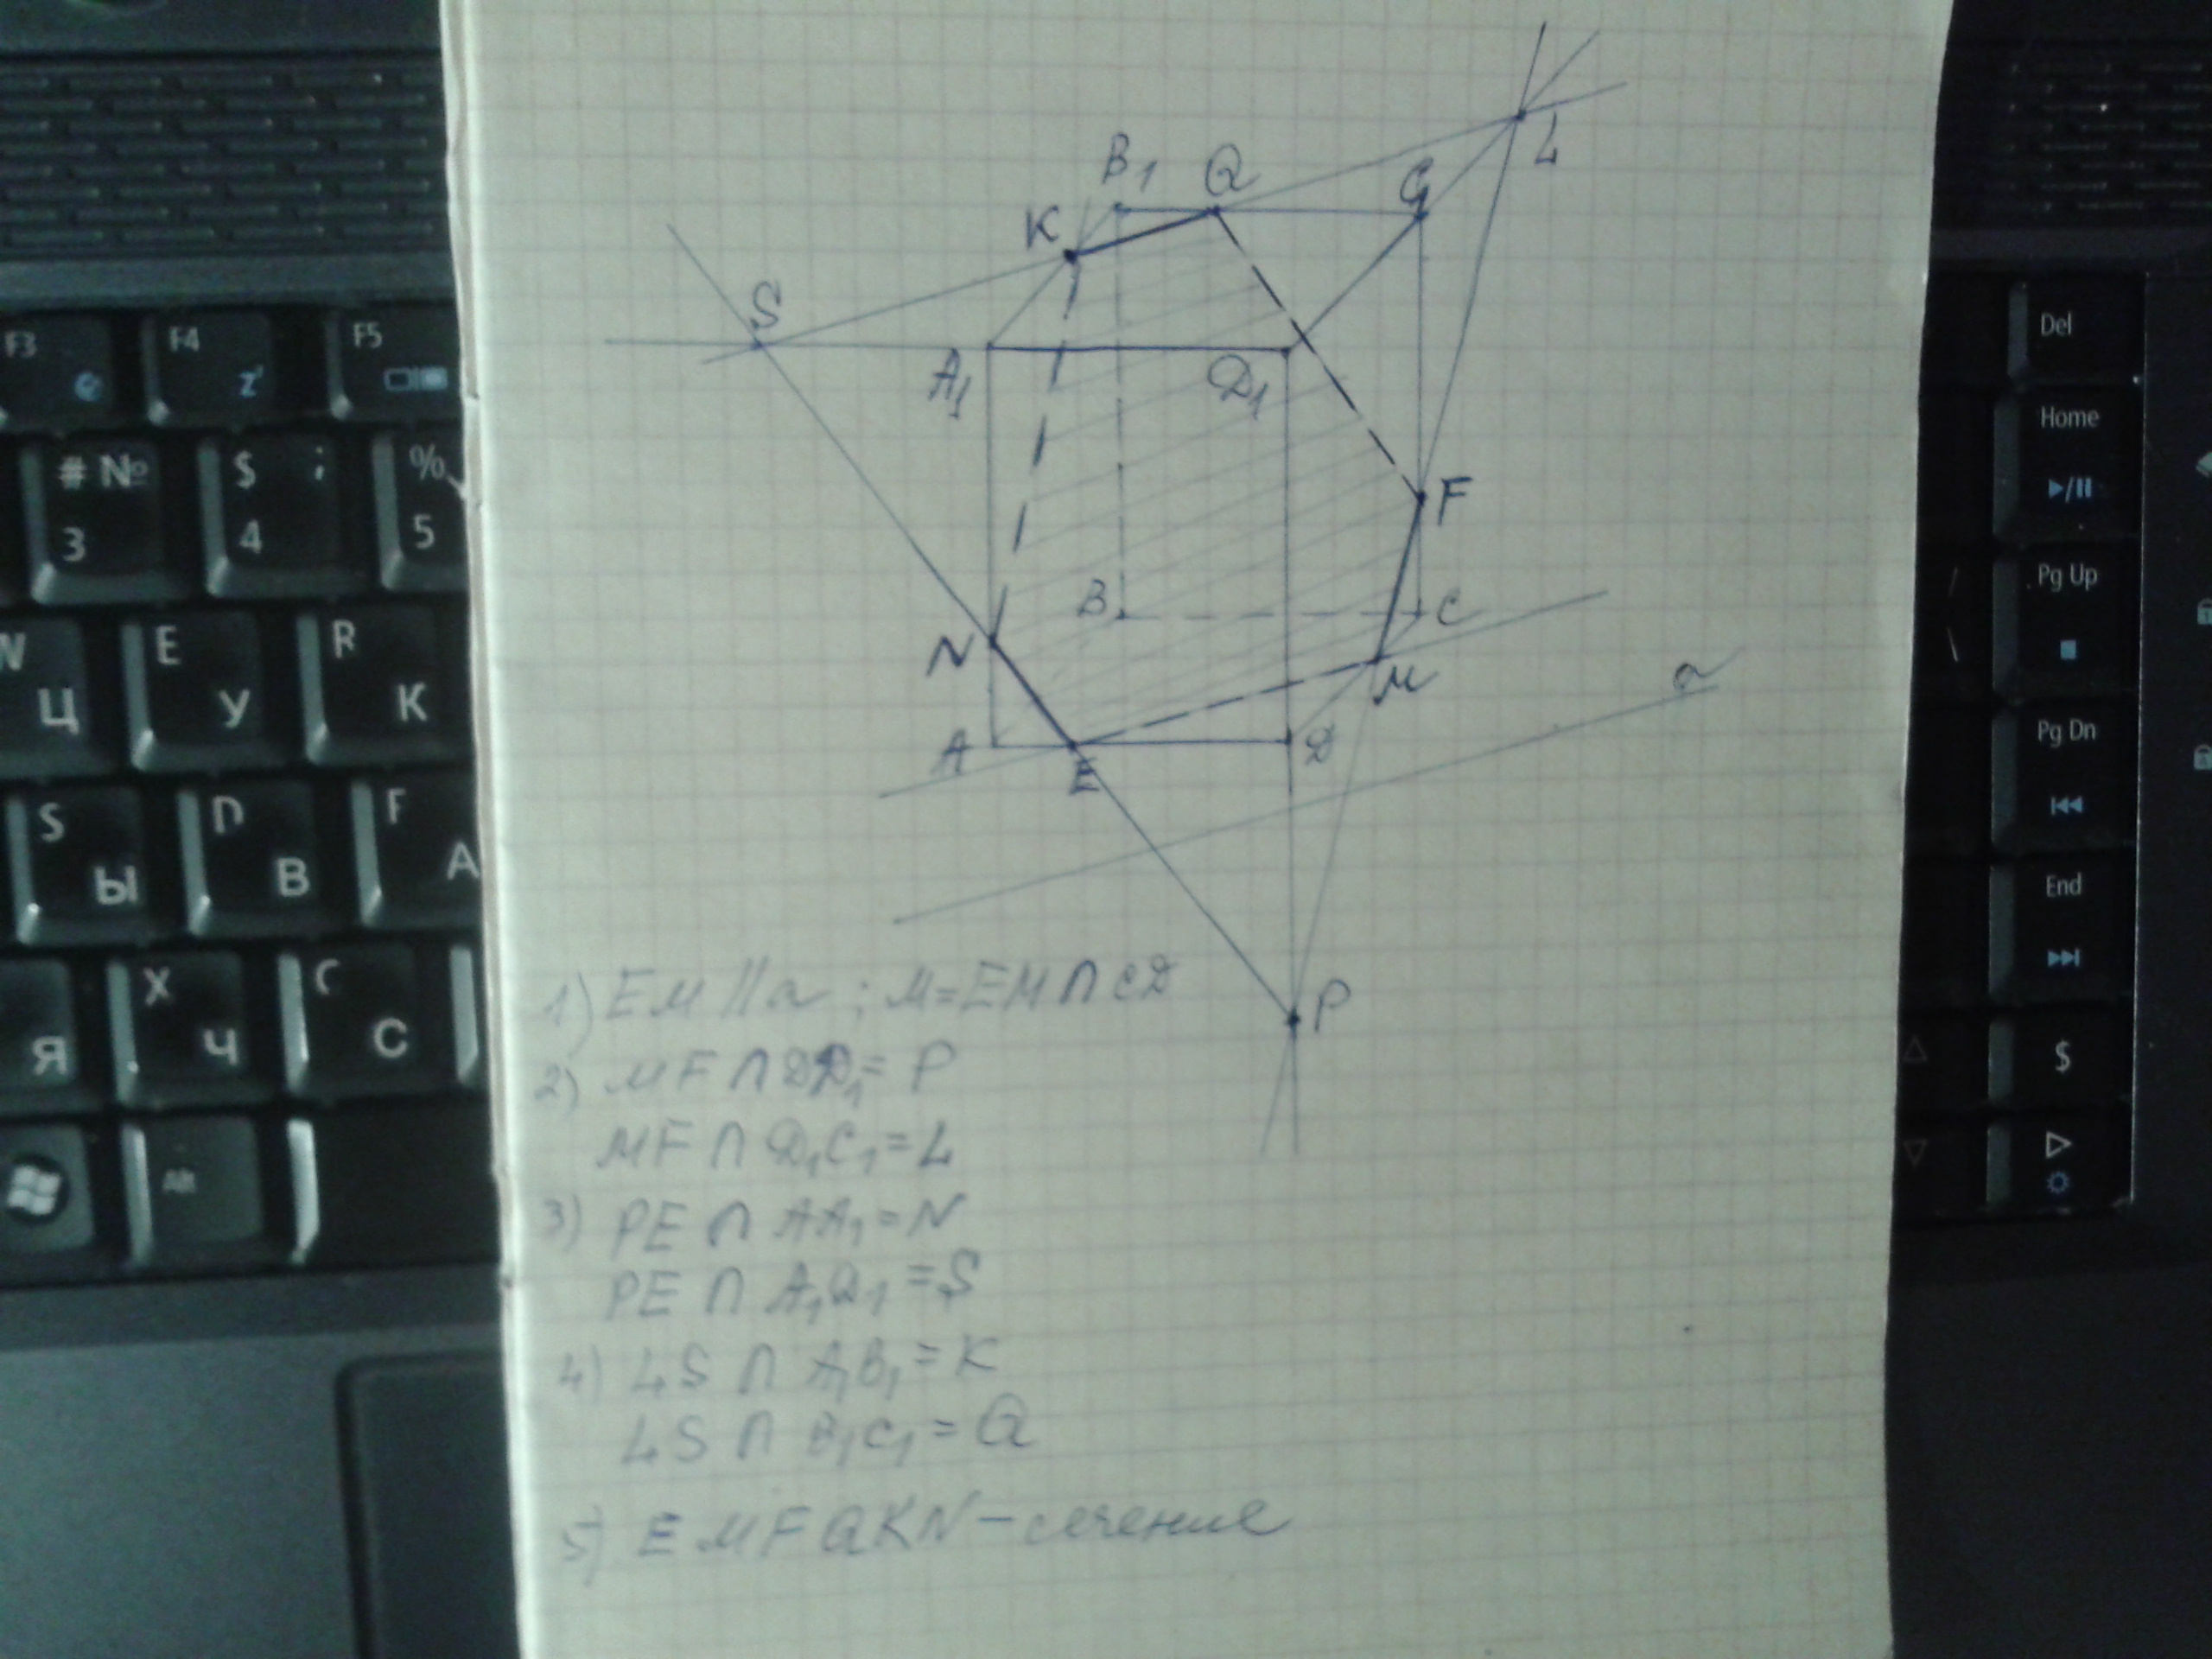 B₁ Q C₁ L
K
S
A₁ D₁
F
B C
N M
a
A E D
P
1) EM || a ; M = EM ∩ CD
2) MF ∩ DD₁ = P
MF ∩ D₁C₁ = L
3) PE ∩ AA₁ = N
PE ∩ A₁D₁ = S
4) LS ∩ A₁B₁ = K
LS ∩ B₁C₁ = Q
5) EMFQKN – сечение
F3 F4 F5
# № 3
$ ; 4
% 5
Ц
E У
R К
S Ы
D В
F А
Я
X Ч
C С
Alt
Del
Home
Pg Up
Pg Dn
End
$